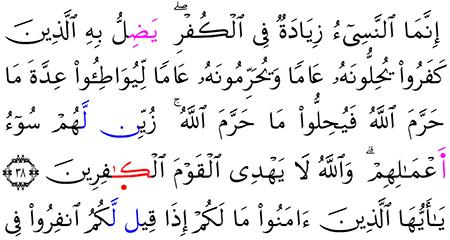 إِنَّمَا ٱلنَّسِىٓءُ زِيَادَةٌ فِى ٱلْكُفْرِ ۖ يَضِلُّ بِهِ ٱلَّذِينَ
كَفَرُوا۟ يُحِلُّونَهُۥ عَامًا وَيُحَرِّمُونَهُۥ عَامًا لِّيُوَاطِـُٔوا۟ عِدَّةَ مَا
حَرَّمَ ٱللَّهُ فَيُحِلُّوا۟ مَا حَرَّمَ ٱللَّهُ ۚ زُيِّن لَّهُمْ سُوٓءُ
أَعْمَـٰلِهِمْ ۗ وَٱللَّهُ لَا يَهْدِى ٱلْقَوْمَ ٱلْكَـٰفِرِينَ ٣٨
يَـٰٓأَيُّهَا ٱلَّذِينَ ءَامَنُوا۟ مَا لَكُمْ إِذَا قِيل لَّكُمُ ٱنفِرُوا۟ فِى